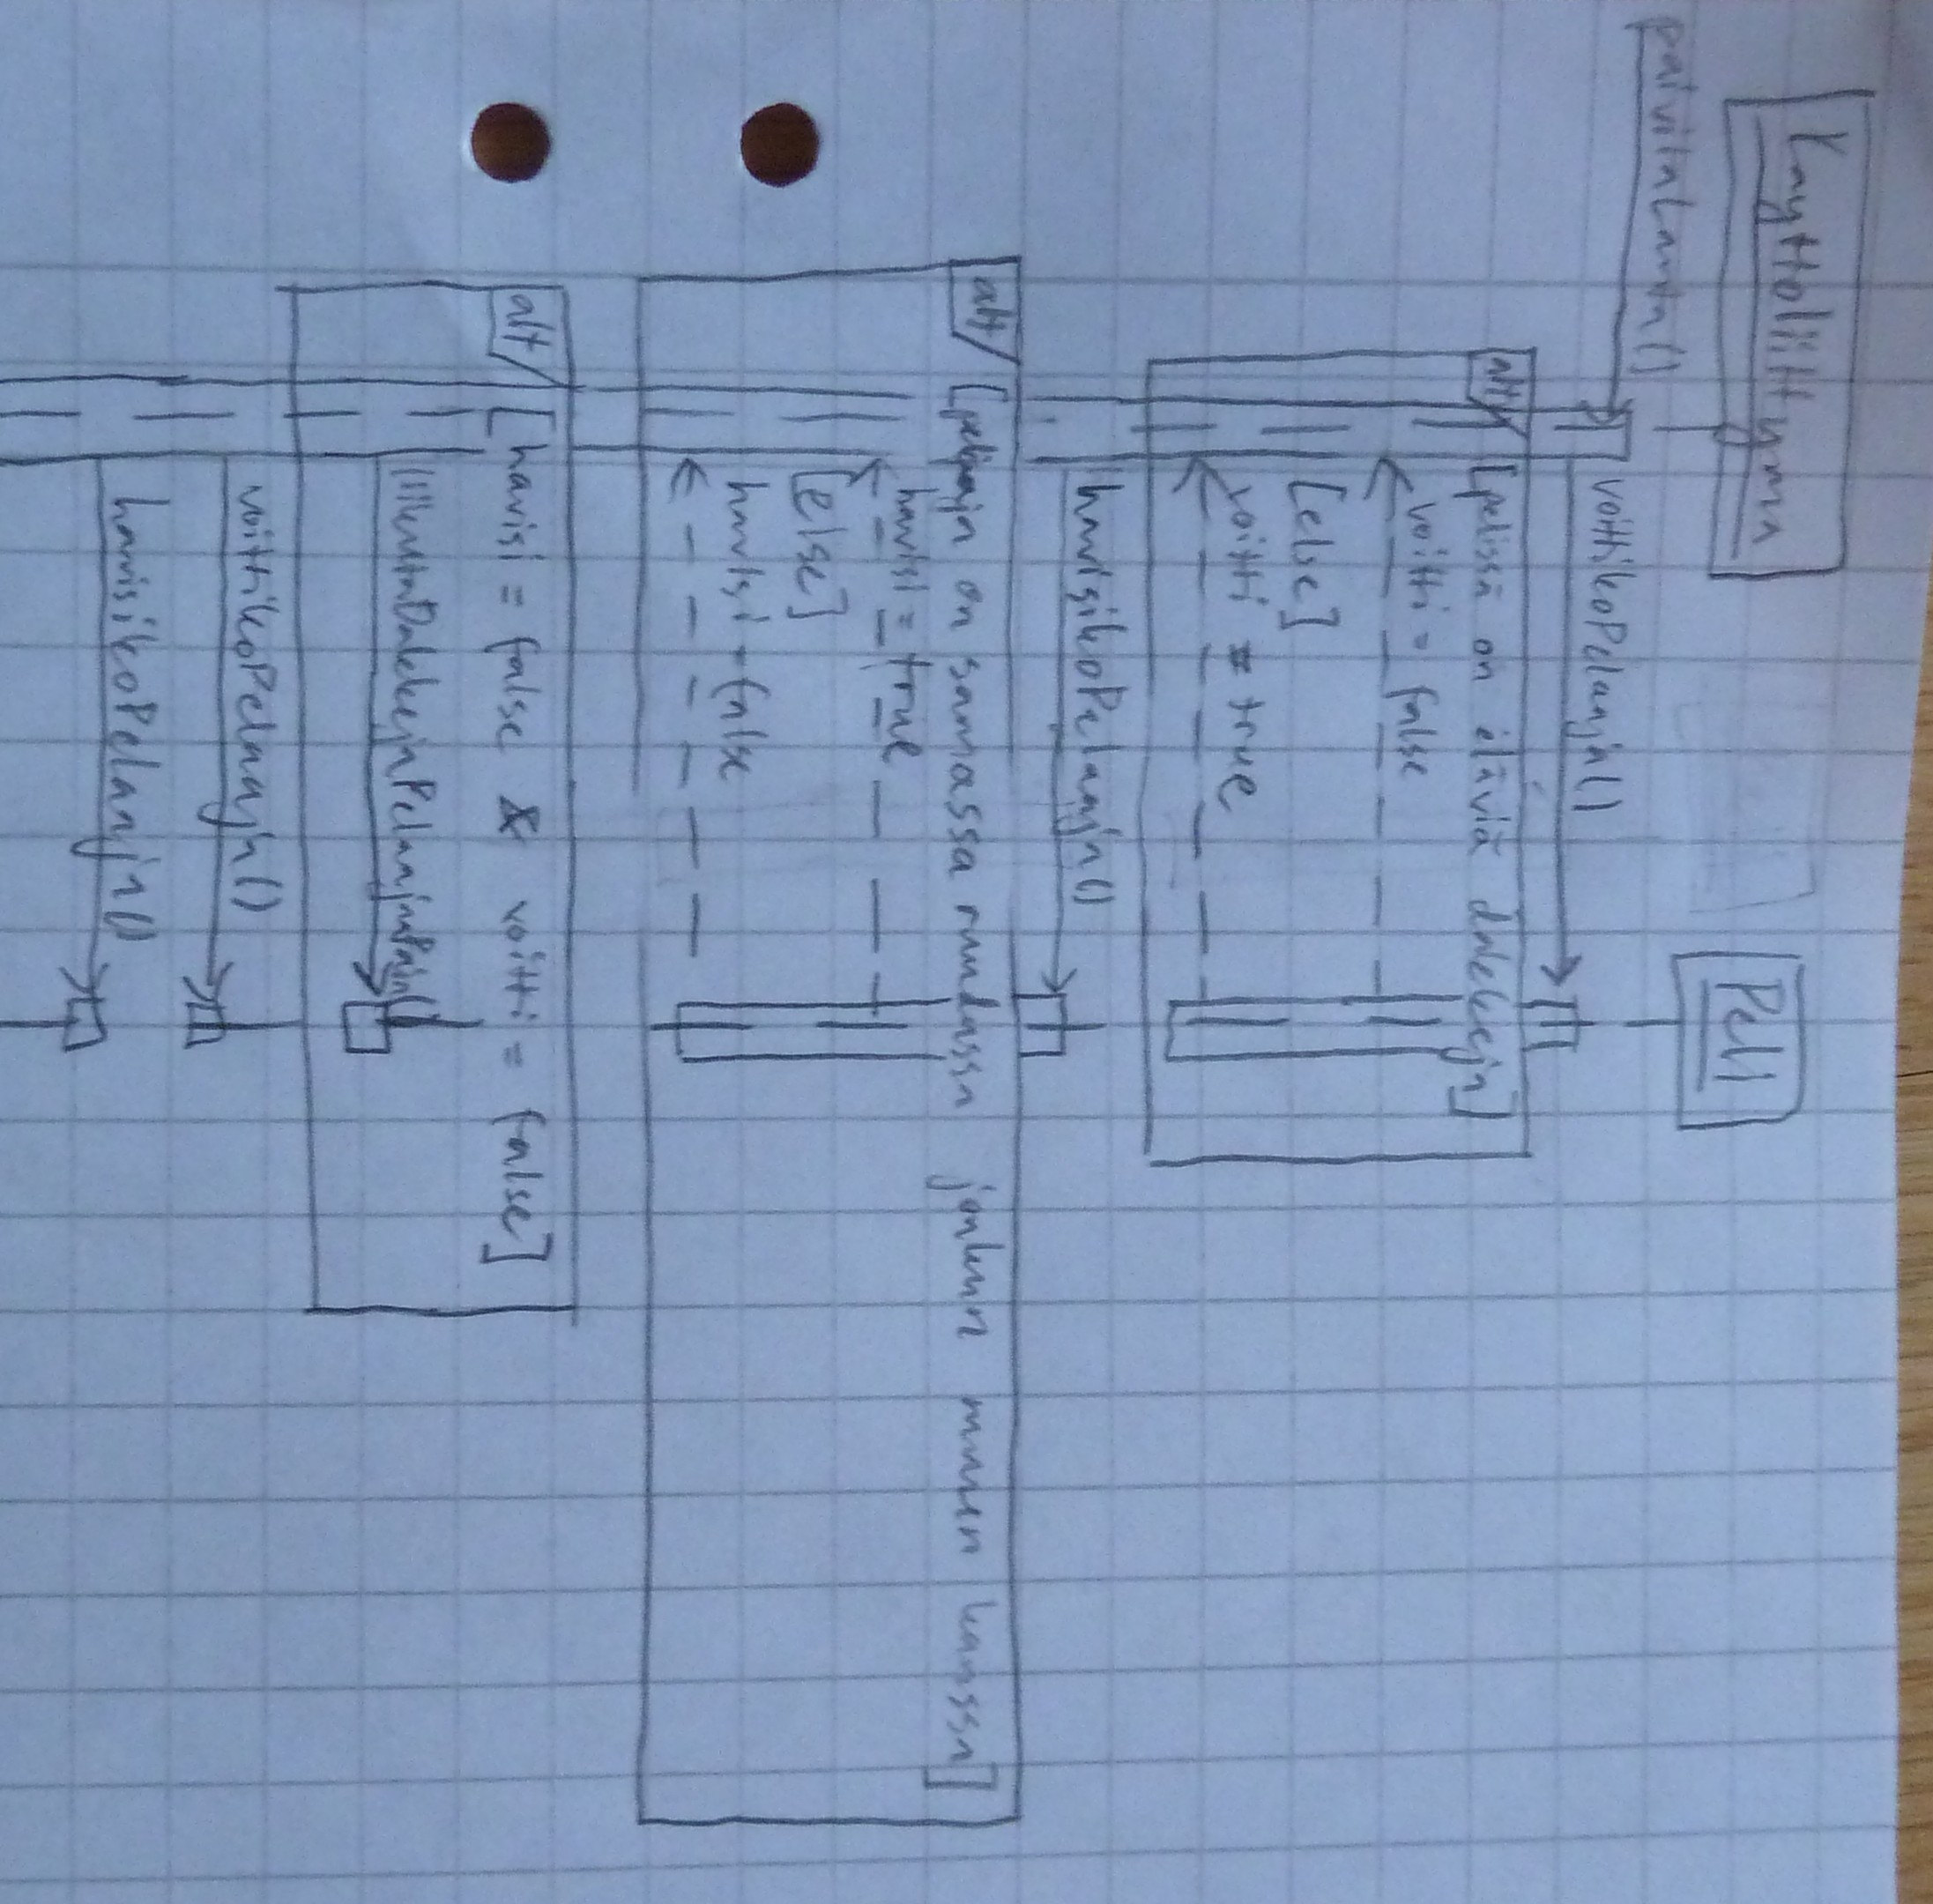 Kayttoliittyma
Peli
paivitaLauta()
voittikoPelaaja()
alt [pelissä on eläviä dalekeja]
voitti = false
[else]
voitti = true
havisikoPelaaja()
alt [pelaaja on samassa ruudussa jonkun muun kanssa]
havisi = true
[else]
havisi = false
alt [havisi = false & voitti = false]
liikutaDalekkejaPelaajaaPain()
voittikoPelaaja()
havisikoPelaaja()